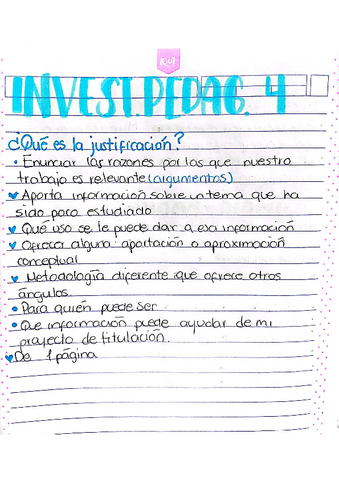 Kiut
INVEST.PEDAG. 4
¿Qué es la justificación?
• Enunciar las razones por las que nuestro
trabajo es relevante (argumentos)
♥ Aporta información sobre un tema que ha
sido poco estudiado
♥ Qué uso se le puede dar a esa información
♥ Ofrecer alguna aportación o aproximación
conceptual
♥ Metodología diferente que ofrece otros
ángulos
• Para quién puede ser
• Que información puede ayudar de mi
proyecto de titulación.
♥ De 1 página